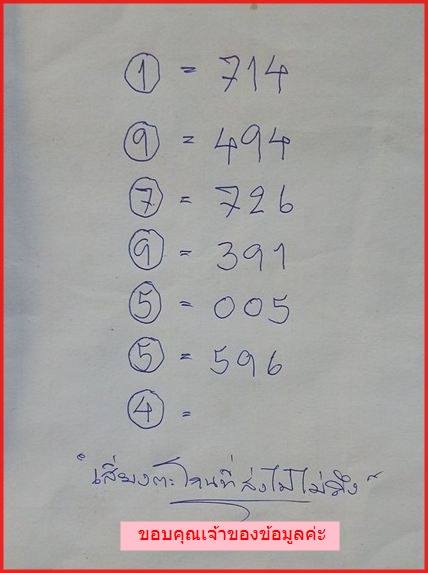 ① = 714
⑨ = 494
⑦ = 726
⑨ = 391
⑤ = 005
⑤ = 596
④ =
"เสี่ยงตะโกนที่ส่งไปไม่ถึง"
ขอบคุณเจ้าของข้อมูลค่ะ